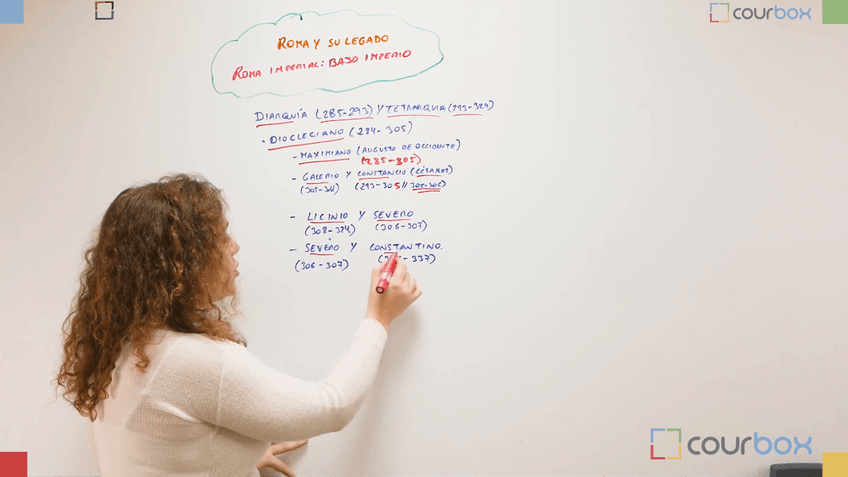 courbox
ROMA Y SU LEGADO
ROMA IMPERIAL: BAJO IMPERIO
DIARQUÍA (285-293) Y TETRARQUIA (293-324)
• DIOCLECIANO (284-305)
- MAXIMIANO (AUGUSTO DE OCCIDENTE)
(285-305)
- GALERIO Y CONSTANCIO (CÉSARES)
(305-311) (293-305// 305-306)
- LICINIO Y SEVERO
(308-324) (306-307)
- SEVERO Y CONSTANTINO.
(306-307) 337)
courbox